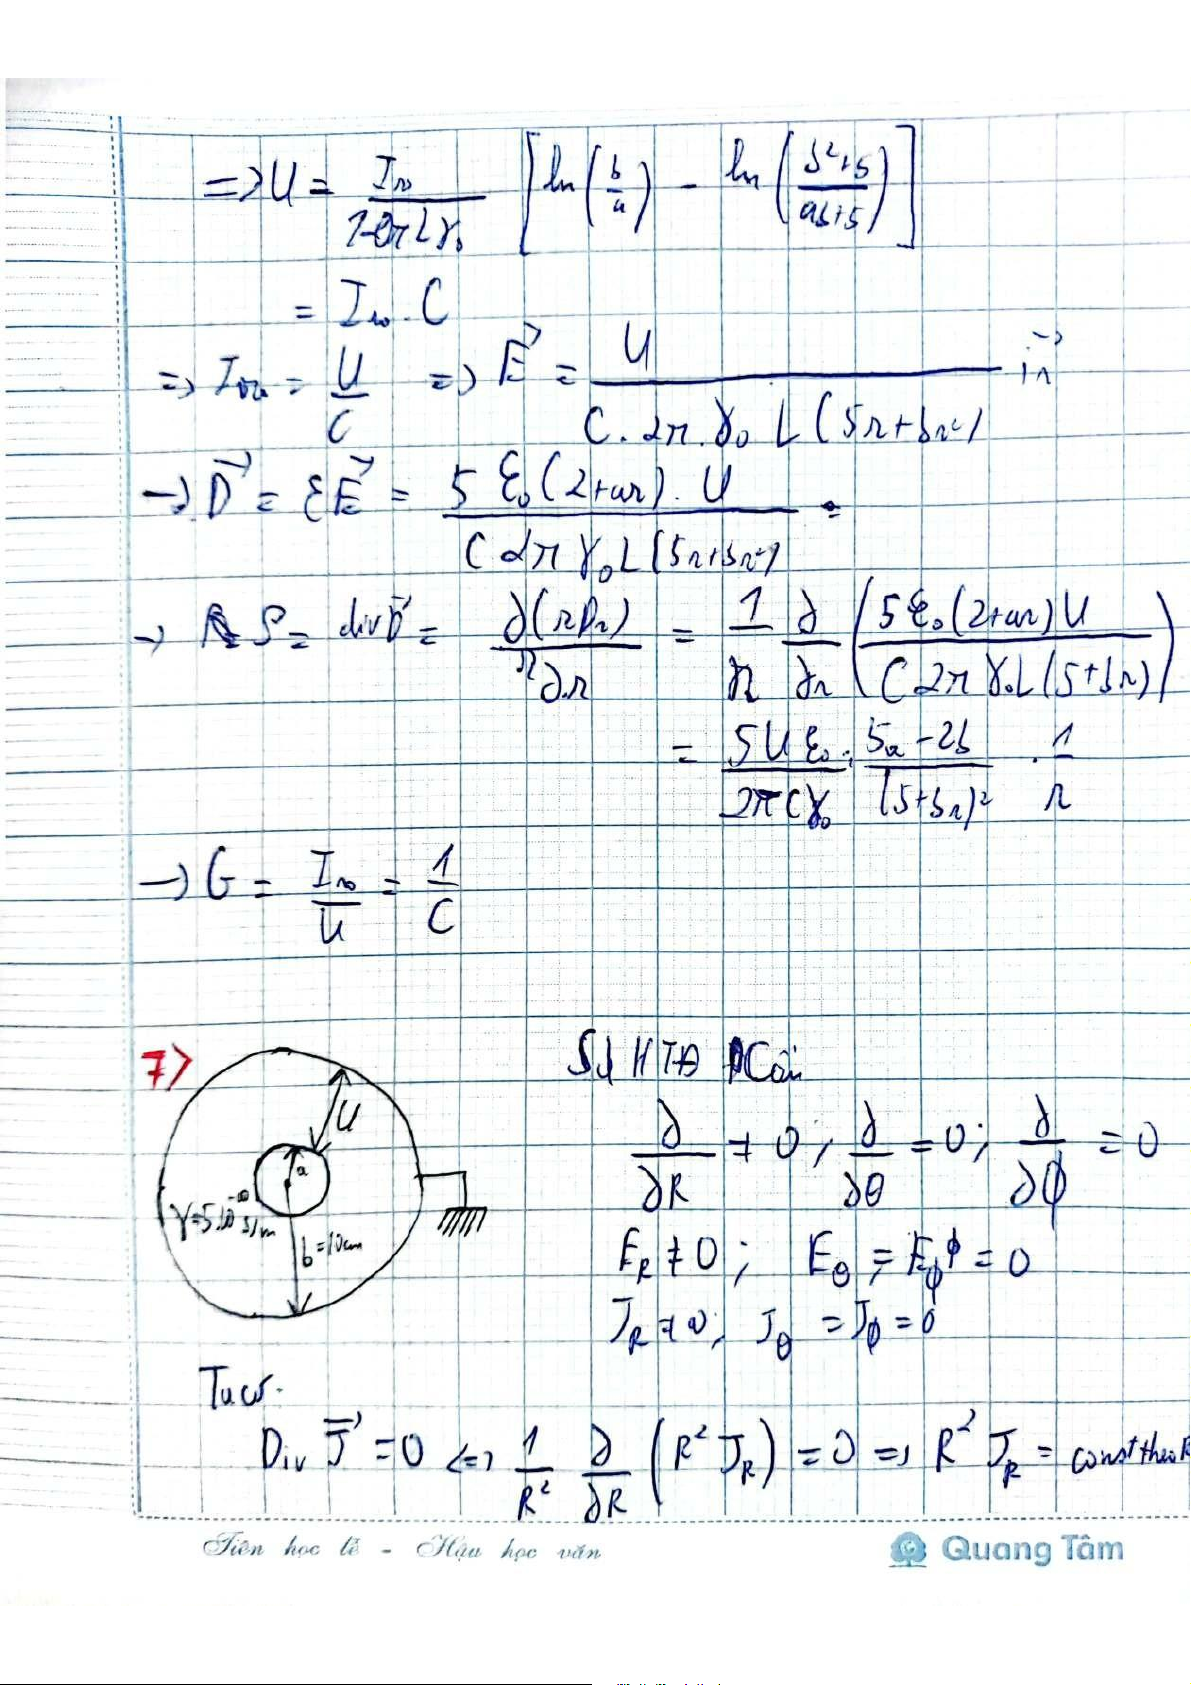 => U = I_ro / (10πLγ₀) [ ln(b/a) - ln((b²+5)/(ab+5)) ]
= I_ro . C
=> I_ro = U/C => E⃗ = U / (C.2π.γ₀ L(5r+br²)) i⃗r
→ D⃗ = εE⃗ = 5ε₀(2+ar).U / (C2πγ₀L(5r+br²))
→ ρ = divD⃗ = ∂(rDr) / r∂r = 1/r ∂/∂r ( 5ε₀(2+ar)U / (C2πγ₀L(5+br)) )
= 5Uε₀ / (2πCγ₀) . (5a-2b) / (5+br)² . 1/r
→ G = I_ro/U = 1/C
7)
U
a
γ=5.10⁻¹⁰ S/m
b=10cm
Sd HTĐ Cầu
∂/∂R ≠ 0; ∂/∂θ = 0; ∂/∂ϕ = 0
E_R ≠ 0; E_θ = E_ϕ = 0
J_R ≠ 0; J_θ = J_ϕ = 0
Ta có:
Div J⃗ = 0 <=> 1/R² ∂/∂R (R² J_R) = 0 => R² J_R = const theo R
Tiên học lễ - Hậu học văn
Quang Tâm